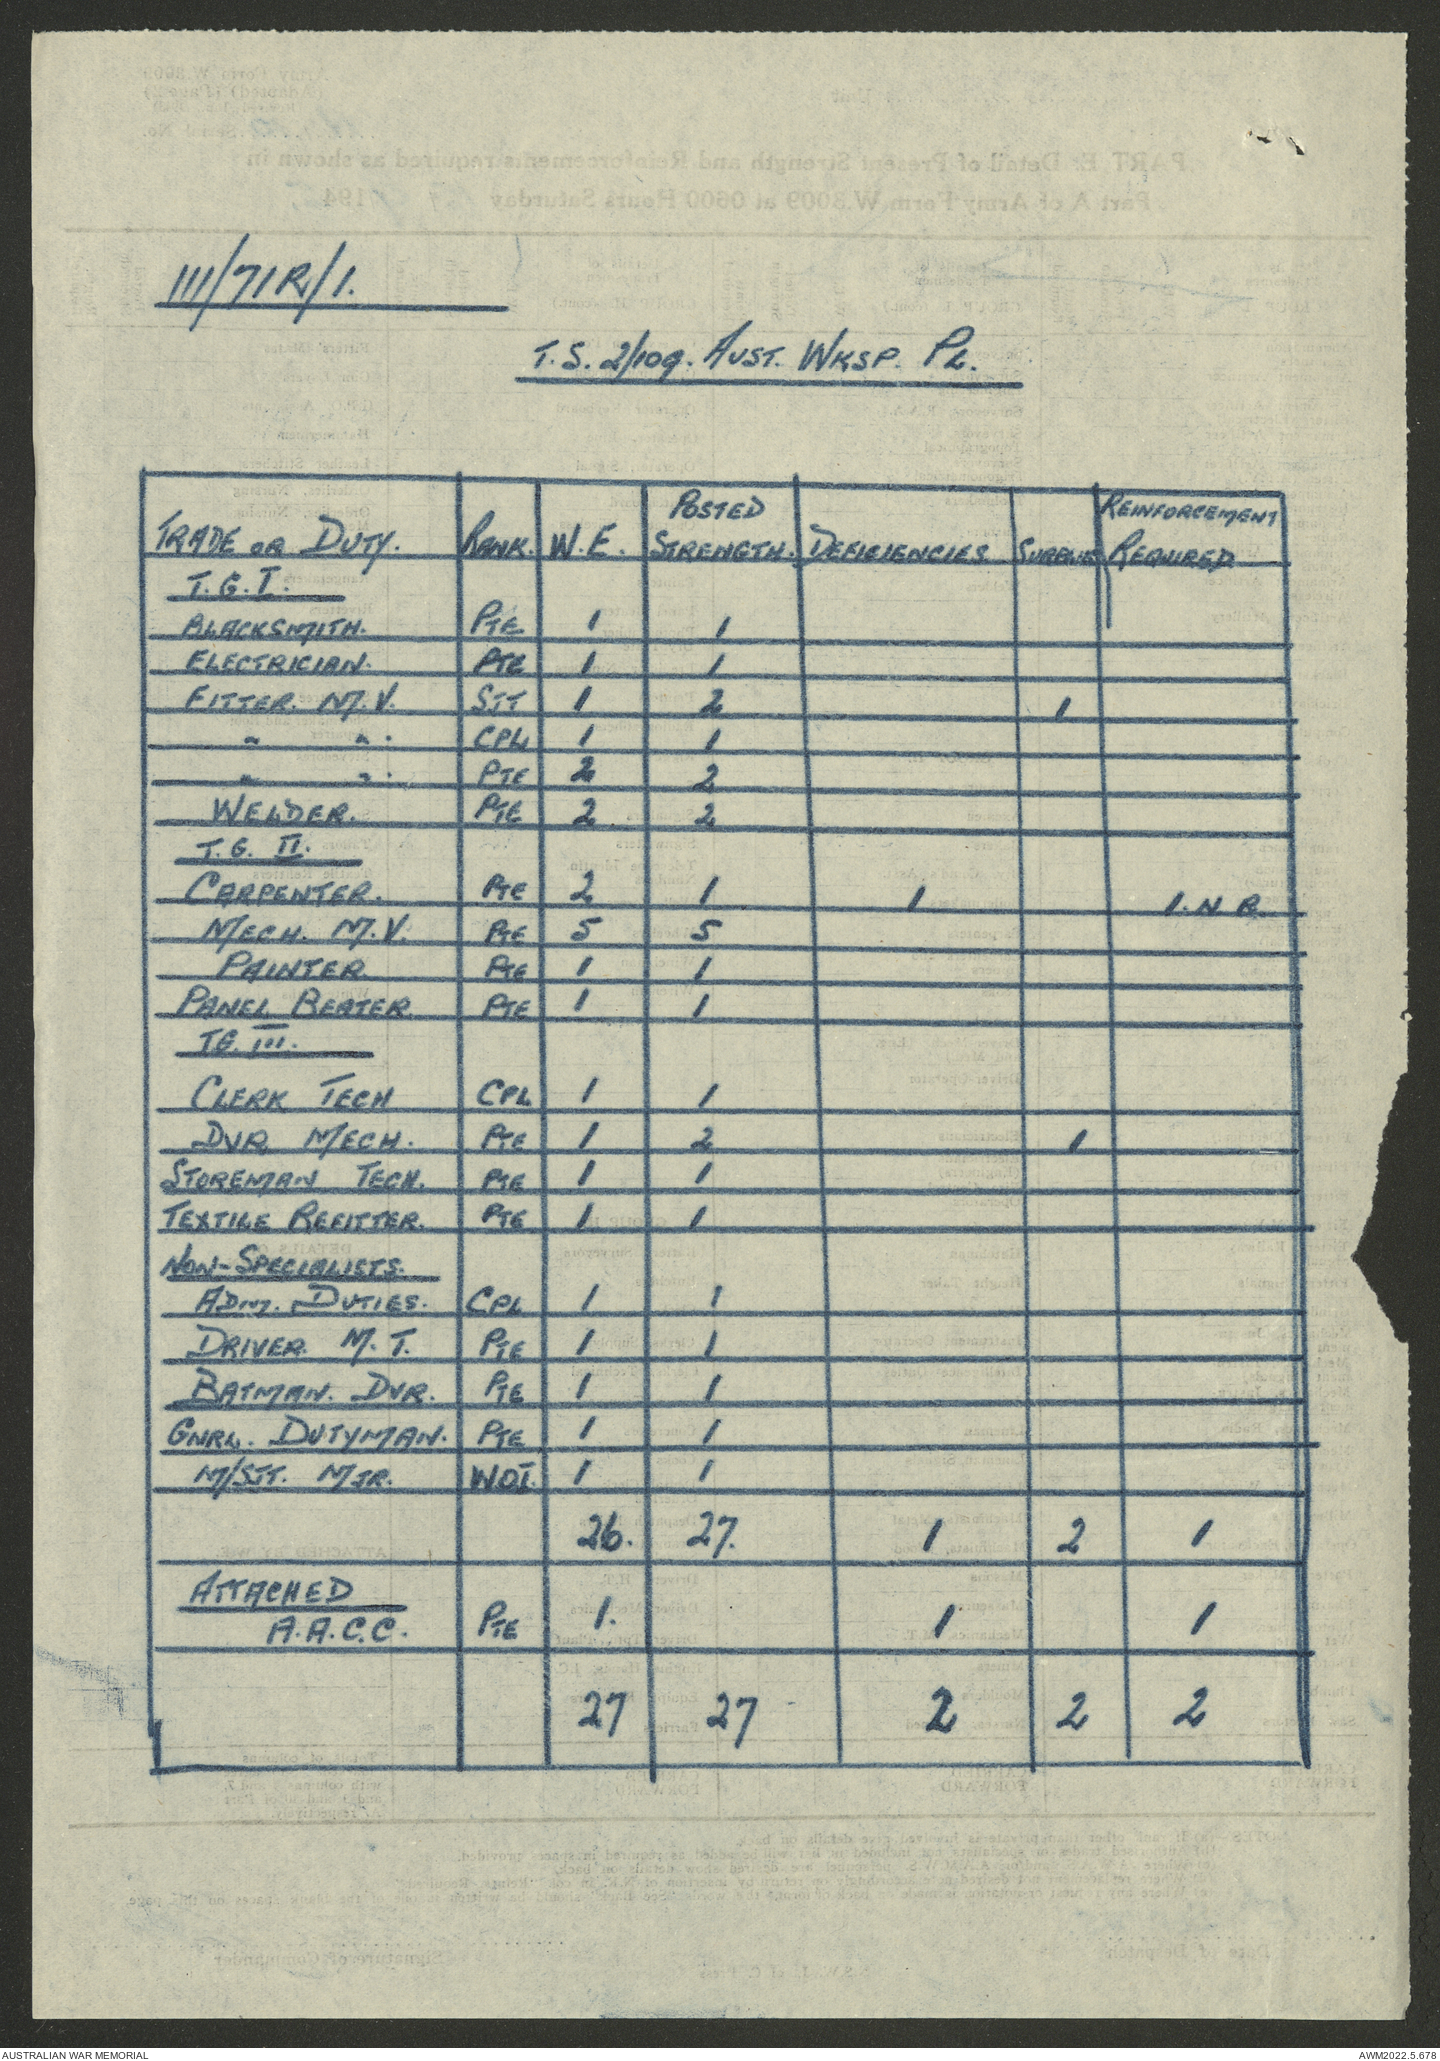 111/71R/1.
T.S. 2/109. AUST. WKSP. PL.
TRADE OR DUTY. RANK. W.E. POSTED STRENGTH. DEFICIENCIES SURPLUS REINFORCEMENT REQUIRED
T.G.I.
BLACKSMITH. PTE 1 1
ELECTRICIAN. PTE 1 1
FITTER M.V. SJT 1 2 1
" " . CPL 1 1
" " . PTE 2 2
WELDER. PTE 2 2
T.G. II.
CARPENTER. PTE 2 1 1 1. N R.
MECH. M.V. PTE 5 5
PAINTER PTE 1 1
PANEL BEATER PTE 1 1
TG. III.
CLERK TECH CPL 1 1
DVR MECH. PTE 1 2 1
STOREMAN TECH. PTE 1 1
TEXTILE REFITTER. PTE 1 1
NON-SPECIALISTS.
ADM. DUTIES. CPL 1 1
DRIVER M.T. PTE 1 1
BATMAN. DVR. PTE 1 1
GNRL. DUTYMAN. PTE 1 1
M/SJT. MJR. WOI. 1 1
26. 27. 1 2 1
ATTACHED
A.A.C.C. PTE 1. 1 1
27 27 2 2 2
AUSTRALIAN WAR MEMORIAL
AWM2022.5.678